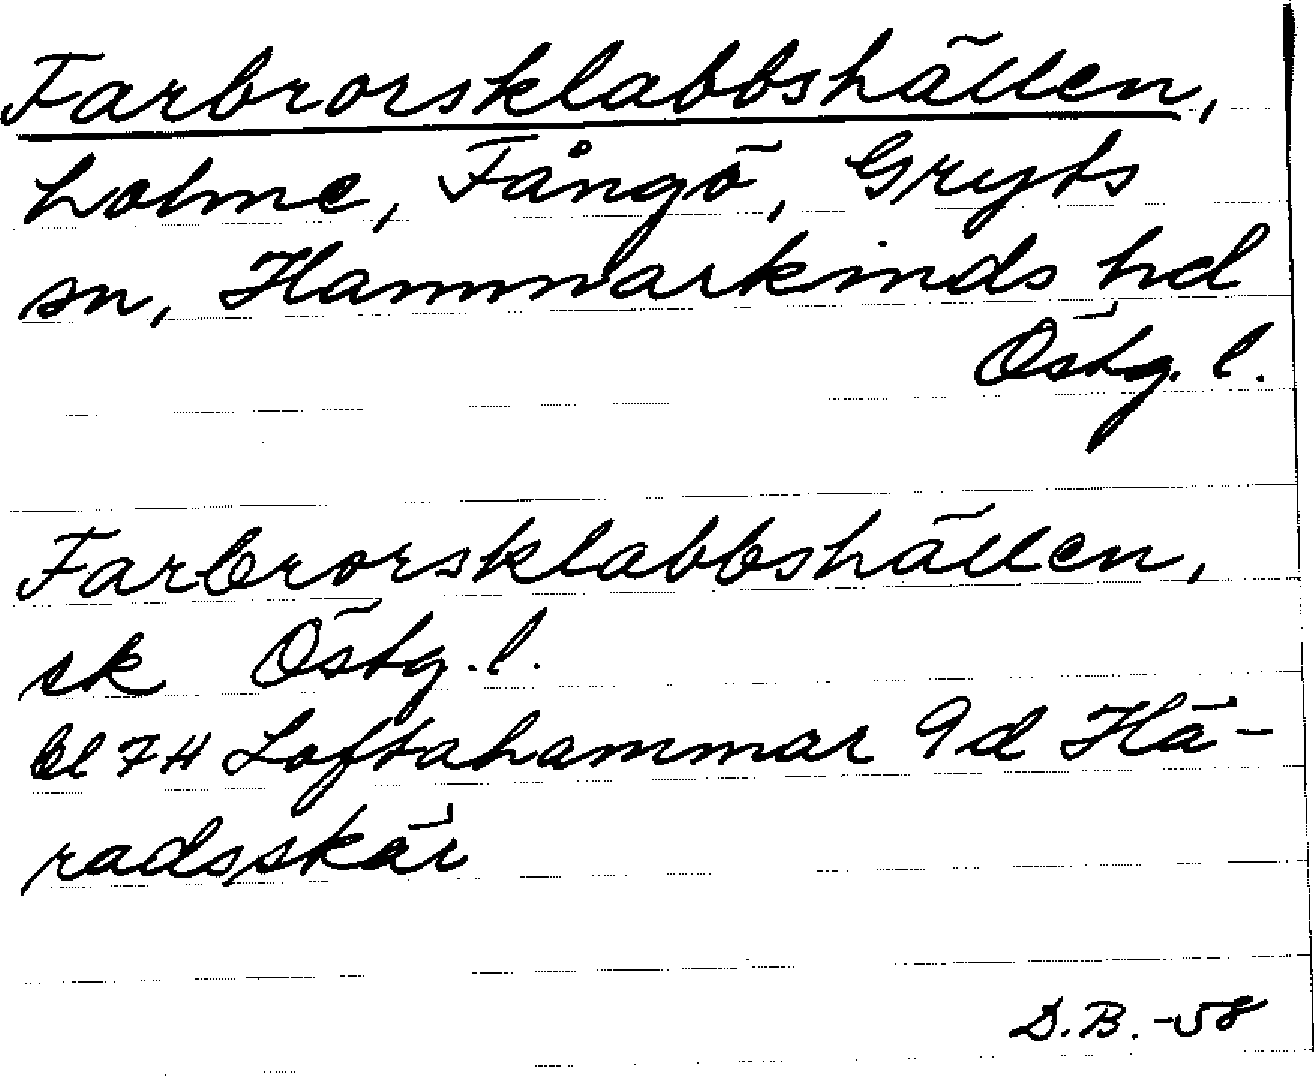 Farbrorsklabbshällen,
holme, Fångö, Gryts
sn, Hammarkinds hd
Östg. l.
Farbrorsklabbshällen,
sk Östg. l.
Bl 7H Loftahammar 9d Hä-
radsskär
D.B. -58